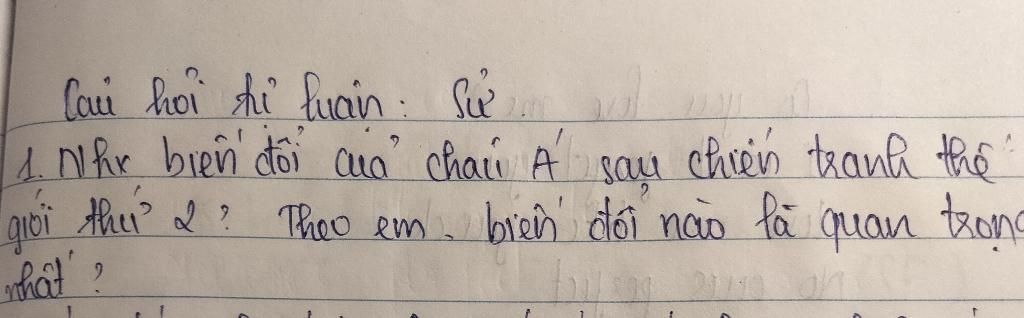 Câu hỏi thi luận: Sử.
1. Nhx biến đổi của châu Á sau chiến tranh thế
giới thứ 2? Theo em, biến đổi nào là quan trọng
nhất?